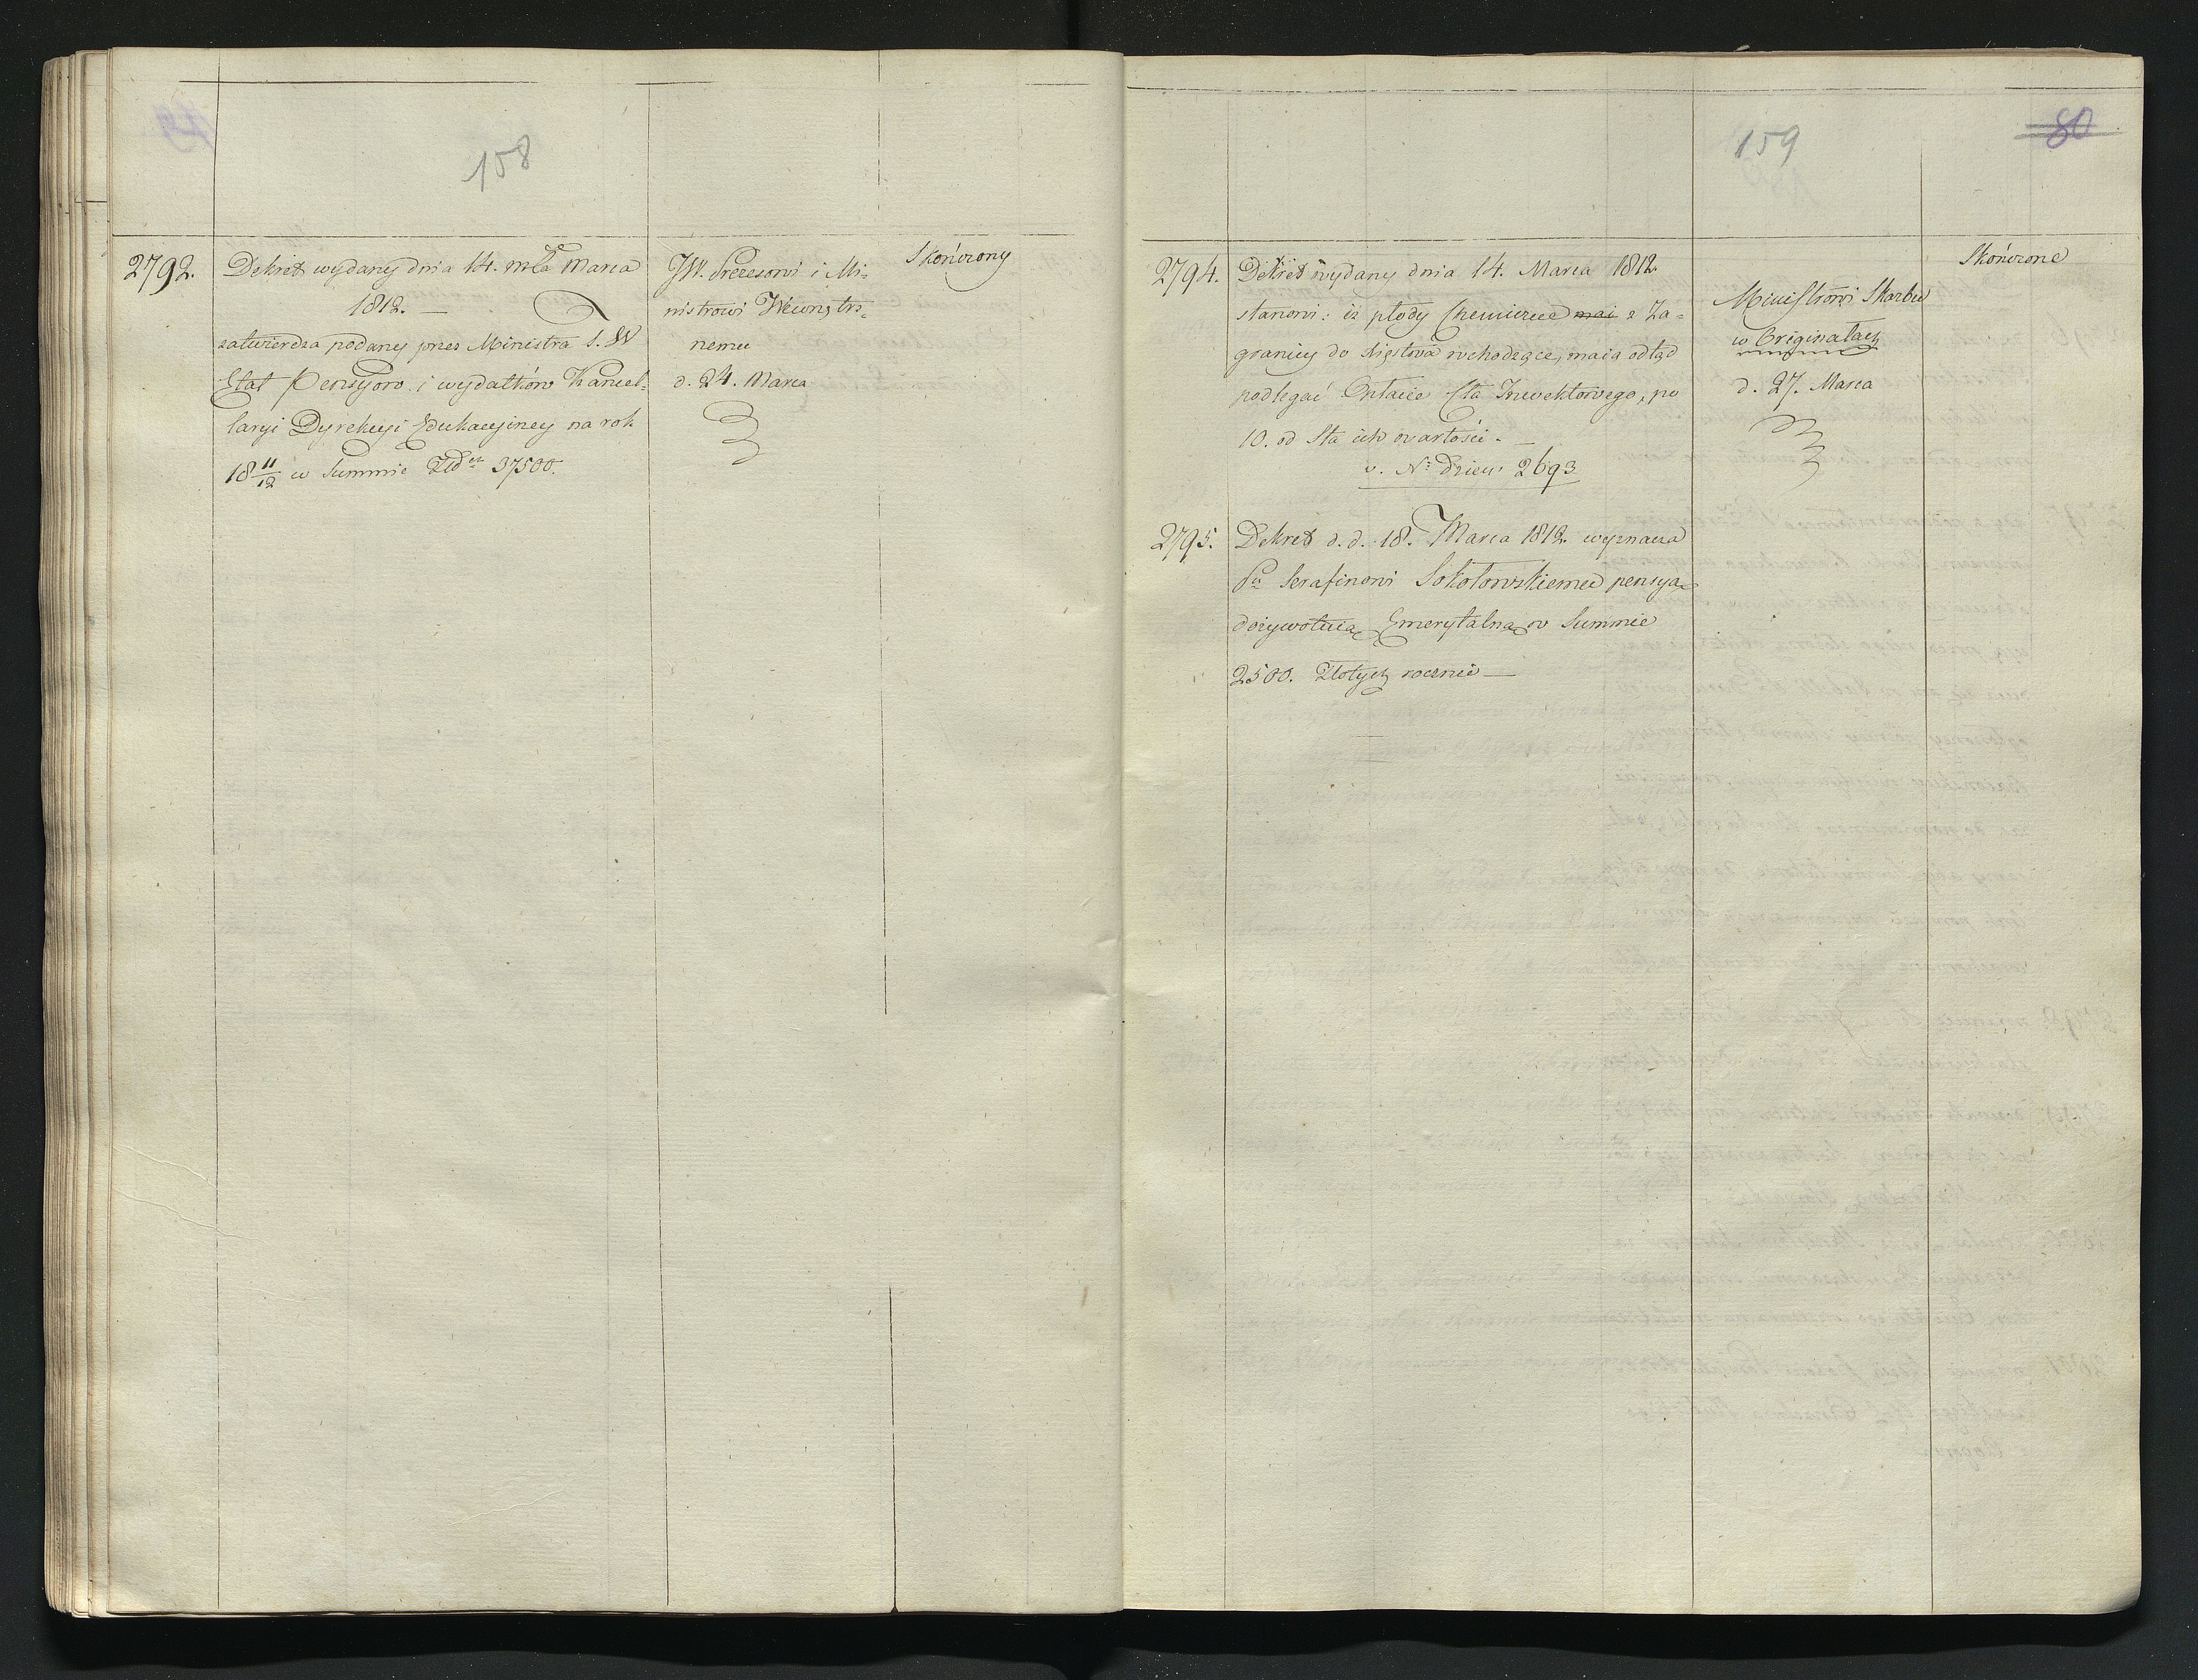 158
2792.
Dekret wydany dnia 14. mca Marca
1812. —
zatwierdza podany przez Ministra S. W
Etat Pensyów i wydatków Kancel-
laryi Dyrekcyi Edukacyiney na rok
18 11/12 w Summie Złch 37500.
JW. Prezesowi i Mi-
nistrowi Wewnętrz-
nemu
d. 24. Marca
Skończony
159
80
2794.
Dekret wydany dnia 14. Marca 1812.
stanowi: iz płody Chemiczne mai z Za-
granicy do Xięstwa wchodzące, maią odtąd
podlegać Opłacie Cła Inwektowego, po
10. od Sta ich wartości. —
v. No Dzien: 2693
Ministrowi Skarbu
w Originałach
d. 27. Marca
Skończone
2795.
Dekret d. d. 18. Marca 1812. wyznacza
Pu Serafinowi Sokołowskiemu pensyą
dożywotnią Emerytalną w Summie
2500. Złotych rocznie —